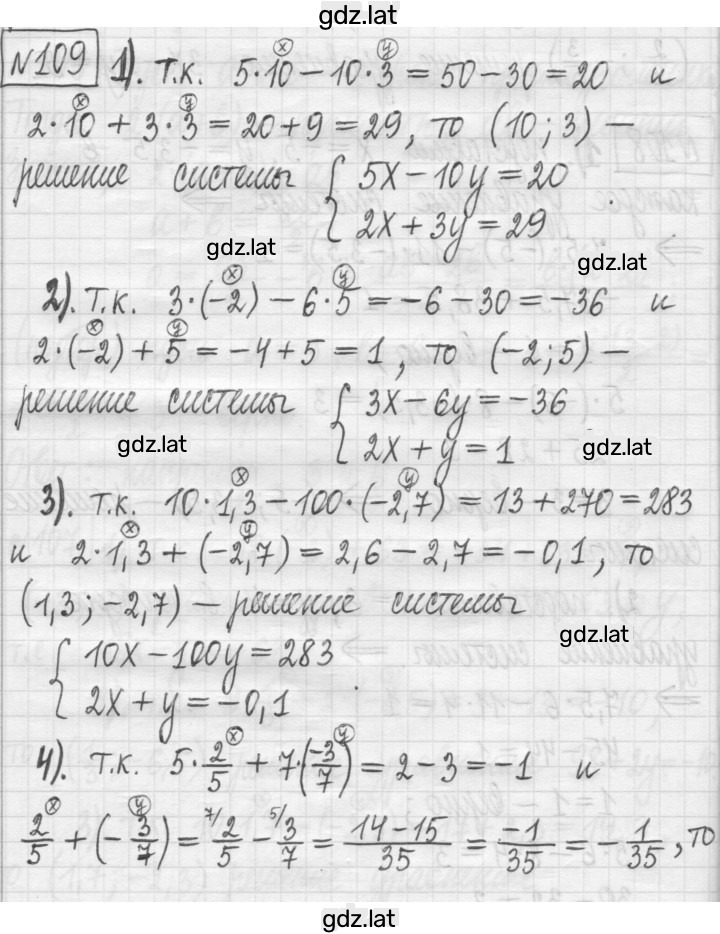 gdz.lat
№109 1). т.к. 5·10 − 10·3 = 50 − 30 = 20 и
2·10 + 3·3 = 20 + 9 = 29, то (10; 3) —
решение системы { 5x − 10y = 20
2x + 3y = 29
gdz.lat
gdz.lat
2). т.к. 3·(−2) − 6·5 = −6 − 30 = −36 и
2·(−2) + 5 = −4 + 5 = 1, то (−2; 5) —
решение системы { 3x − 6y = −36
2x + y = 1
gdz.lat
gdz.lat
3). т.к. 10·1,3 − 100·(−2,7) = 13 + 270 = 283
и 2·1,3 + (−2,7) = 2,6 − 2,7 = −0,1, то
(1,3; −2,7) — решение системы
gdz.lat
{ 10x − 100y = 283
2x + y = −0,1
4). т.к. 5·2/5 + 7·(−3/7) = 2 − 3 = −1 и
2/5 + (−3/7) = 7/ 2/5 − 5/ 3/7 = 14−15/35 = −1/35 = −1/35, то
gdz.lat